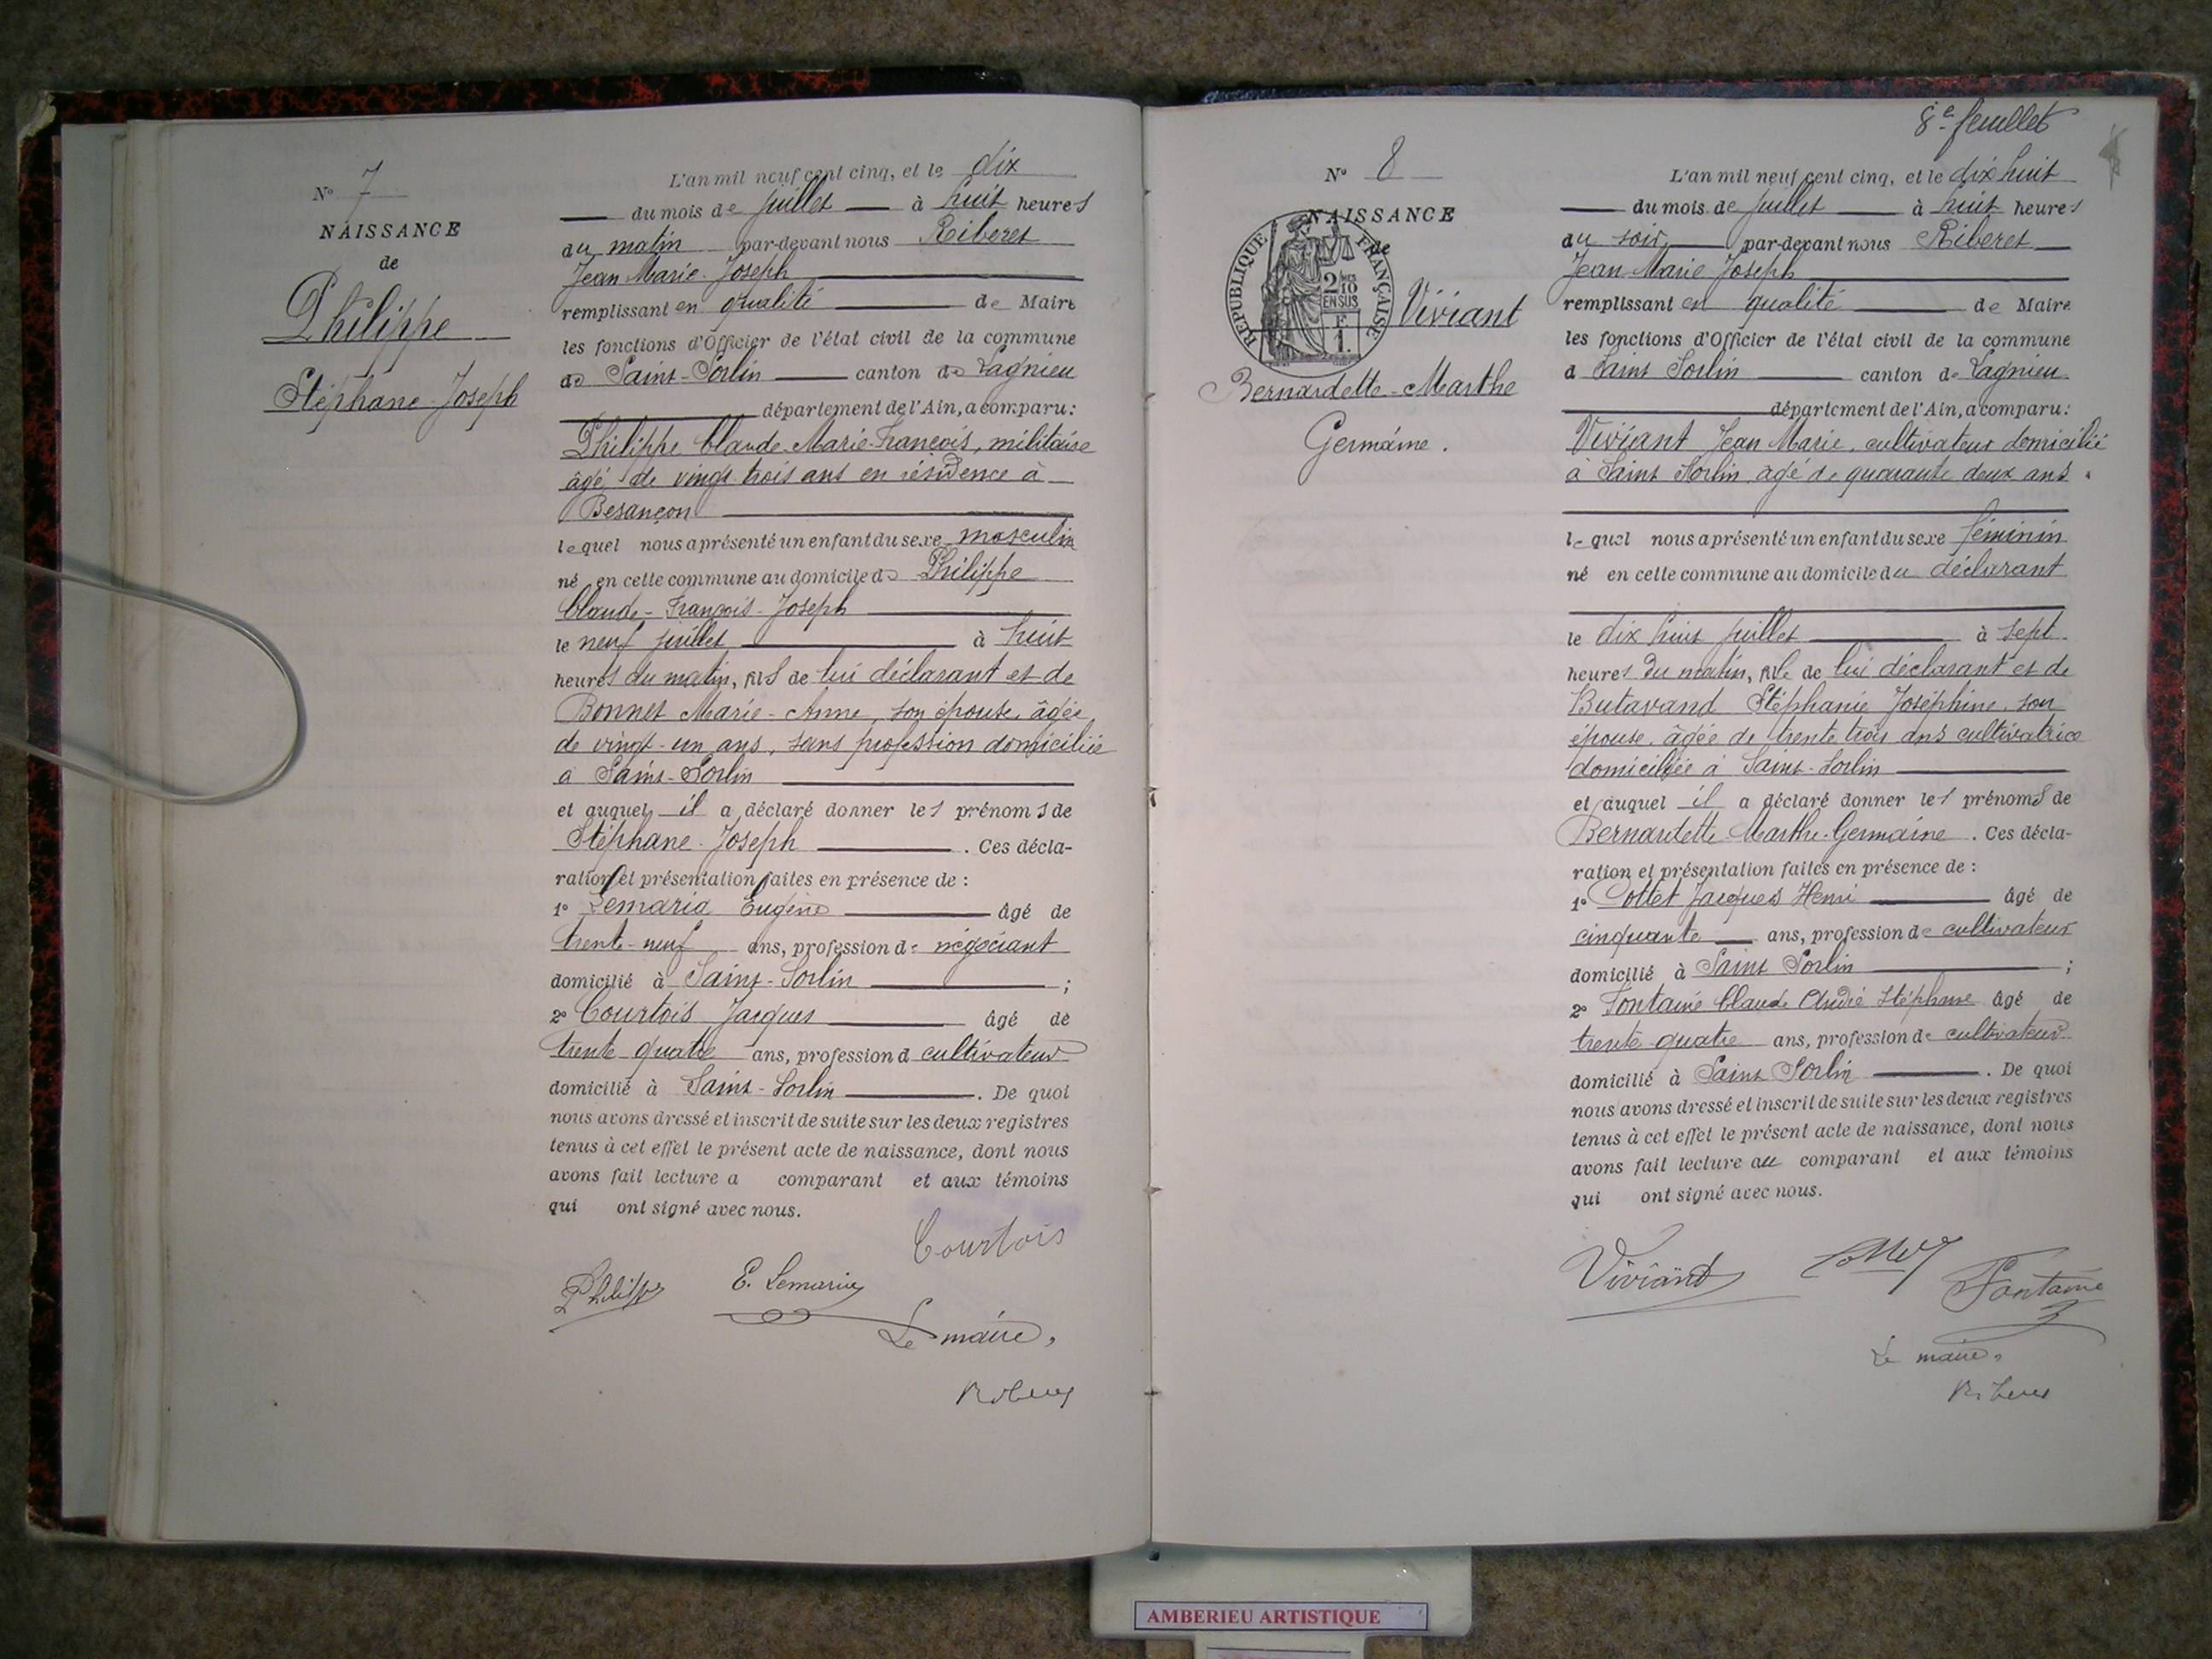 N° 7
NAISSANCE
de
Philippe
Stéphane-Joseph
L'an mil neuf cent cinq, et le dix
du mois de juillet à huit heures
du matin par-devant nous Riberet
Jean Marie-Joseph
remplissant en qualité de Maire
les fonctions d'Officier de l'état civil de la commune
de Saint-Sorlin canton de Lagnieu
département de l'Ain, a comparu:
Philippe Claude-Marie-François, militaire
âgé de vingt trois ans en résidence à
Besançon
lequel nous a présenté un enfant du sexe masculin
né en cette commune au domicile de Philippe
Claude-François-Joseph
le neuf juillet à huit
heures du matin, fils de lui déclarant et de
Bonnet Marie-Anne, son épouse, âgée
de vingt-un ans, sans profession domiciliée
à Saint-Sorlin
et auquel il a déclaré donner les prénoms de
Stéphane-Joseph . Ces décla-
ration et présentation faites en présence de :
1° Lemaria Eugène âgé de
trente-neuf ans, profession de négociant
domicilié à Saint-Sorlin ;
2° Courtois Jacques âgé de
trente quatre ans, profession d cultivateur
domicilié à Saint-Sorlin . De quoi
nous avons dressé et inscrit de suite sur les deux registres
tenus à cet effet le présent acte de naissance, dont nous
avons fait lecture a comparant et aux témoins
qui ont signé avec nous.
Courtois
Philippe E. Lemaria
Le maire,
Riberet
8e feuillet
N° 8
NAISSANCE
de
RÉPUBLIQUE FRANÇAISE
2/10
EN SUS
F
1.
Viviant
Bernardette-Marthe
Germaine.
L'an mil neuf cent cinq, et le dix huit
du mois de juillet à huit heures
du soir par-devant nous Riberet
Jean-Marie Joseph
remplissant en qualité de Maire
les fonctions d'Officier de l'état civil de la commune
d Saint Sorlin canton de Lagnieu
département de l'Ain, a comparu:
Viviant Jean Marie, cultivateur domicilié
à Saint Sorlin, agé de quarante deux ans.
lequel nous a présenté un enfant du sexe féminin
né en cette commune au domicile du déclarant
le dix huit juillet à sept
heures du matin, fille de lui déclarant et de
Butavand Stéphanie Joséphine, son
épouse, âgée de trente trois ans cultivatrice
domiciliée à Saint-Sorlin
et auquel il a déclaré donner les prénoms de
Bernardette-Marthe-Germaine . Ces décla-
ration et présentation faites en présence de :
1° Cottet Jacques Henri âgé de
cinquante ans, profession de cultivateur
domicilié à Saint Sorlin ;
2° Fontaine Claude André Stéphane âgé de
trente-quatre ans, profession de cultivateur
domicilié à Saint Sorlin . De quoi
nous avons dressé et inscrit de suite sur les deux registres
tenus à cet effet le présent acte de naissance, dont nous
avons fait lecture au comparant et aux témoins
qui ont signé avec nous.
Viviant Cottet Fontaine
Le maire,
Riberet
AMBERIEU ARTISTIQUE